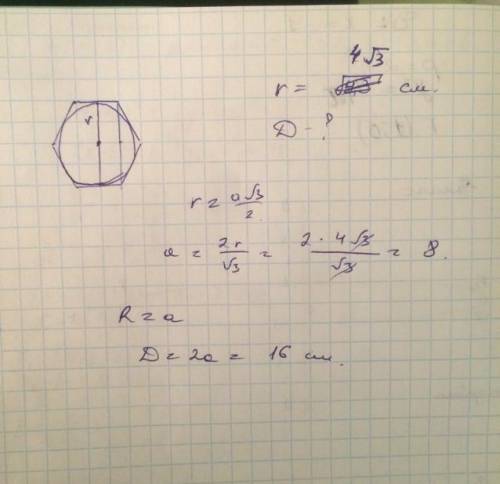 r
4√3
r = см.
D - ?
r = a√3/2
a = 2r/√3 = 2 · 4√3/√3 = 8.
R = a
D = 2a = 16 см.